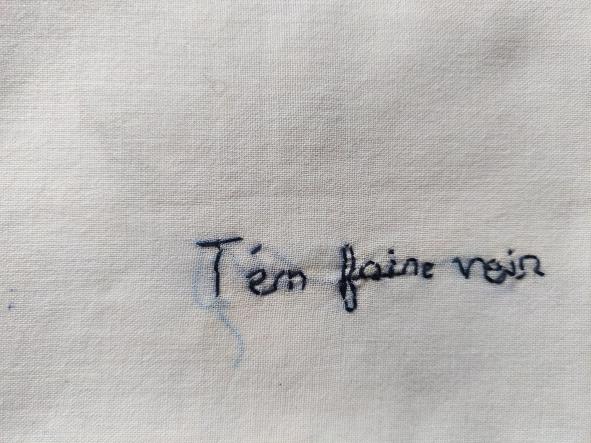 T'en faire voir